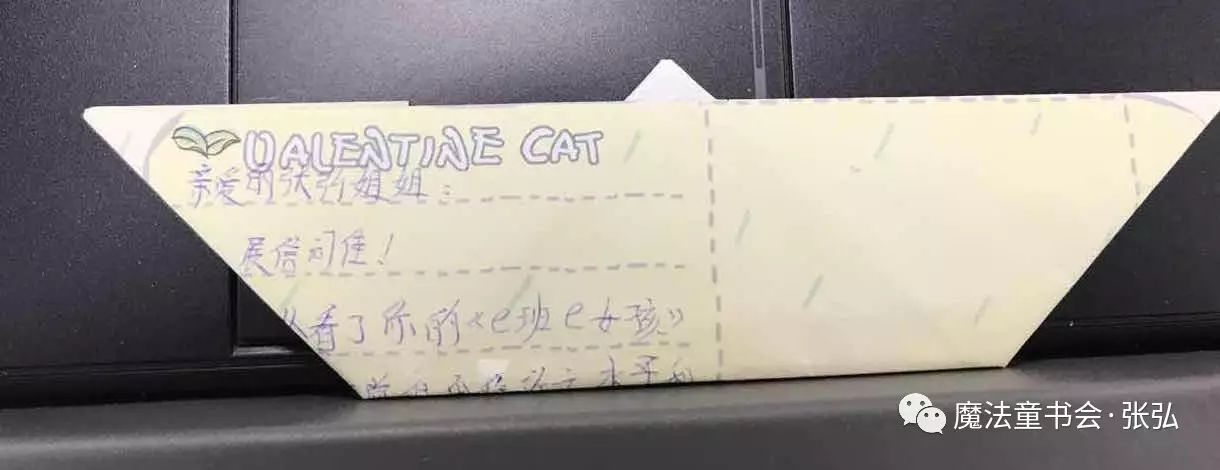 VALENTINE CAT
亲爱的张弘姐姐：
展信问佳！
从看了你的《e班e女孩》
水平和
魔法童书会·张弘